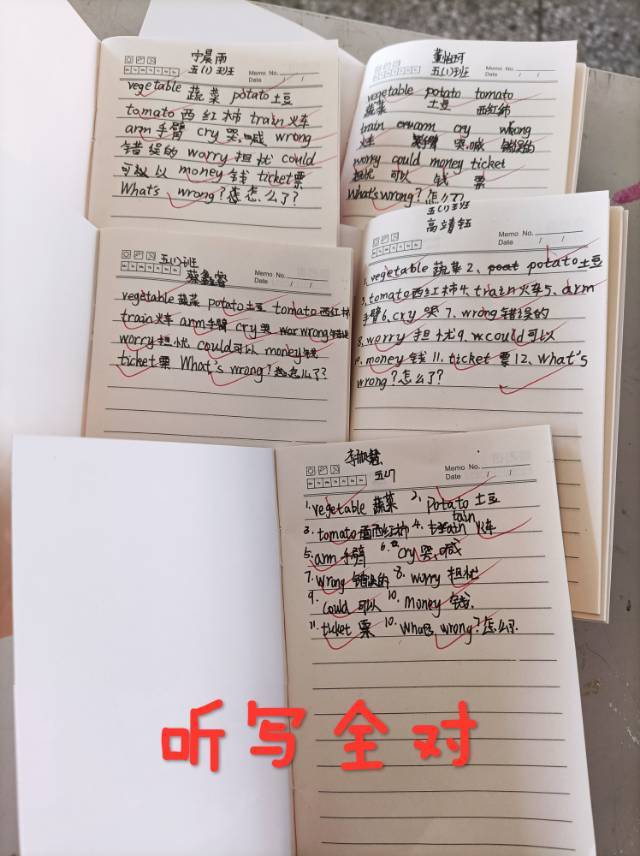 宁晨雨
五(1)班
Memo No.
Date / /
vegetable 蔬菜 potato 土豆
tomato 西红柿 train 火车
arm 手臂 cry 哭,喊 wrong
错误的 worry 担忧 could
可以 money 钱 ticket 票
What's wrong? 怎么了?
五(1)班
Memo No.
Date / /
vegetable potato tomato
蔬菜 土豆 西红柿
train arm cry wrong
火车 手臂 哭,喊 错误的
worry could money ticket
担忧 可以 钱 票
What's wrong? 怎么了?
五(1)班
Memo No.
Date / /
vegetable 蔬菜 potato 土豆 tomato 西红柿
train 火车 arm 手臂 cry 哭 wrong 错误
worry 担忧 could 可以 money 钱
ticket 票 What's wrong? 怎么了?
五(1)班
高靖钰
Memo No.
Date / /
1、vegetable 蔬菜 2、potato 土豆
3、tomato 西红柿 4、train 火车 5、arm
手臂 6、cry 哭 7、wrong 错误的
8、worry 担忧 9、could 可以
10、money 钱 11、ticket 票 12、What's
wrong? 怎么了?
五(1)
Memo No.
Date / /
1、vegetable 蔬菜 2、potato 土豆
3、tomato 西红柿 4、tain 火车
5、arm 手臂 6、cry 哭,喊
7、wrong 错误的 8、worry 担忧
9、could 可以 10、money 钱
11、ticket 票 10、What's wrong? 怎么了
听写全对